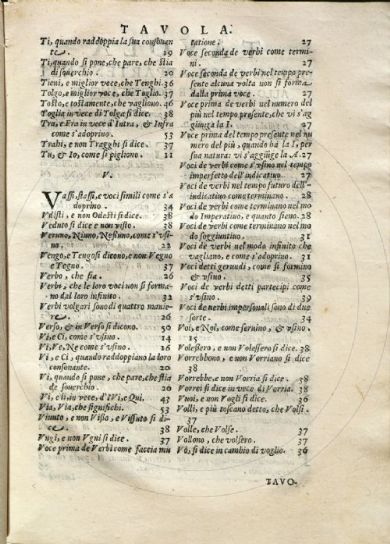 TAVOLA.
Ti, quando raddoppia la sua consonen
te. 29
Ti, quando si pone, che pare, che stia
di souerchio. 20
Tieni, e miglior vece, che Tenghi. 36
Tolgo, e miglior voce, che Toglio. 37
Tosto, e tostamente, che vagliono. 46
Toglia in vece di Tolga si dice. 38
Tra, e Fra in vece d'Intra, & Infra
come s'adoprino. 53
Trahi, e non Tragghi si dice. 37
Tu, & Io, come si pigliono. 11
V.
Vassi, stassi, e voci simili come s'a
doprino. 34
Vdisti, e non Odesti si dice. 38
Veduto si dice e non visto. 38
Veruno, Niuno, Nessuno, come s'vsi-
no. 22
Vengo, e Tengo si dicono, e non Vegno
e Tegno. 37
Verbo, che sia. 26
Verbo, che le loro voci non si forma-
no dal loro infinito. 32
Verbi volgari sono di quattro manie-
re. 26
Verso, & in Verso si dicono. 50
Vi, e Ci, come s'vsino. 14
Vi, Ve, Ne come s'vsino. 16
Vi, e Ci, quando raddoppiano la loro
consonante. 20
Vi, quando si pone, che pare, che stia
de souerchio. 20
Vi, e li in vece, d'Ivi, e Qui. 43
Via, Via, che significhi. 53
Vinuto, e non Visso, e Vissuto si di-
ce. 38
Vngi, e non Vgni si dice. 37
Voce prima de Verbi come faccia mu
tatione. 27
Voce seconda de verbi come termi-
ni. 27
Voce seconda de verbi nel tempo pre-
sente alcuna volta non si forma
dalla prima voce. 27
Voce prima de verbi nel numero del
più nel tempo presente, che vi s'ag
giunga la I. 27
Voce prima del tempo presente nel nu
mero del più, quando ha la I, per
sua natura vi s'aggiugne la A. 27
Voci de verbi come s'vsino nel tempo
imperfetto dell'indicatiuo. 27
Voci de verbi nel tempo futuro dell'-
indicatiuo come terminano. 28
Voci de verbi come terminano nel mo
do Imperatiuo, e quanto sieno. 28
Voci de verbi come terminano nel mo
do soggiuntiuo. 29
Voci de verbi nel modo infinito che
vagliano, e come s'adoprino. 31
Voci detti gerundi, come si formino
& vsino. 35
Voci de verbi detti partecipi come
s'vsino. 39
Voci de verbi impersonali sono di due
sorte. 34
Voi, e Noi, come seruino, & vsino.
15
Volessero, e non Volessero si dice. 38
Vorrebbono, e non Vorriano si dice
38
Vorrebbe, e non Vorria si dice. 38
Vorrei si dice in vece di Vorria. 38
Vuoi, e non Vogli si dice. 36
Volli, e più toscano detto, che Volsi.
37
Volle, che Volse. 37
Vollono, che volsero. 37
Vò, si dice in cambio di voglio. 36
TAVO-